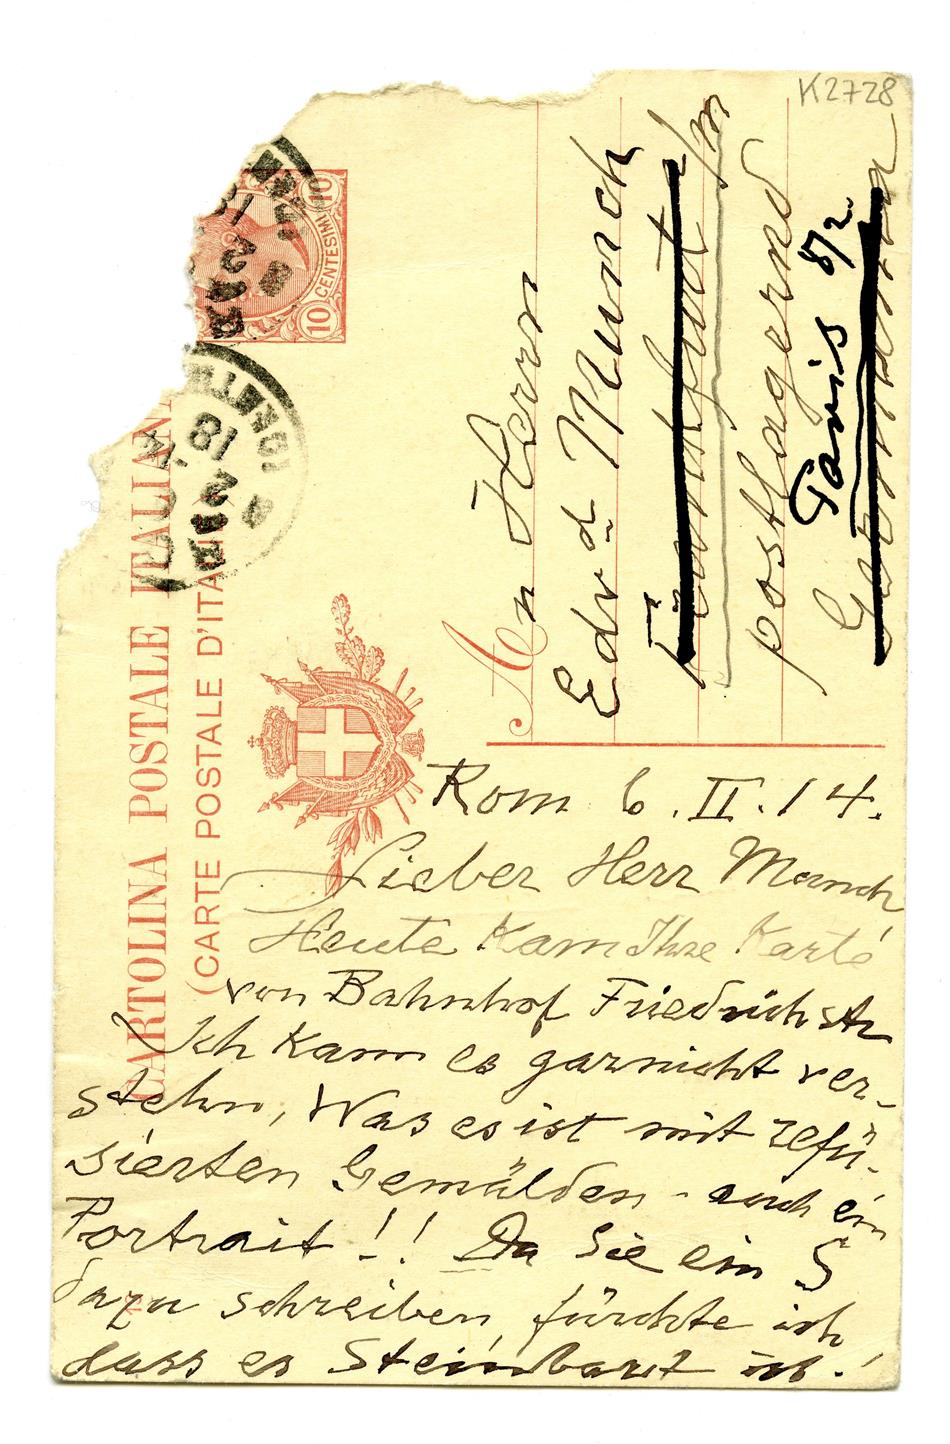 K2728
10
10
CENTESIMI
18
2
18
2
CARTOLINA POSTALE ITALIANA
(CARTE POSTALE D'ITALIE
An Herrn
Edvd Munch
Frankfurt /m
postlagernd
Paris 8/2
Germania
Rom 6.II.14.
Lieber Herr Munch
Heute Kam Ihre Karte
von Bahnhof Friedrichstr
Ich Kann es garnicht ver-
stehn, Was es ist mit refü-
sierten Gemälden - auch ein
Portrait!! Da Sie ein S
dazu schreiben, fürchte ich
dass es Steinbart ist!